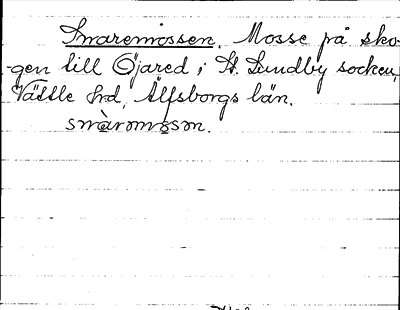 Snaremossen. Mosse på sko-
-gen till Öjared i St. Lundby socken,
Vättle hd, Älfsborgs län.
snàrəmɷsən.